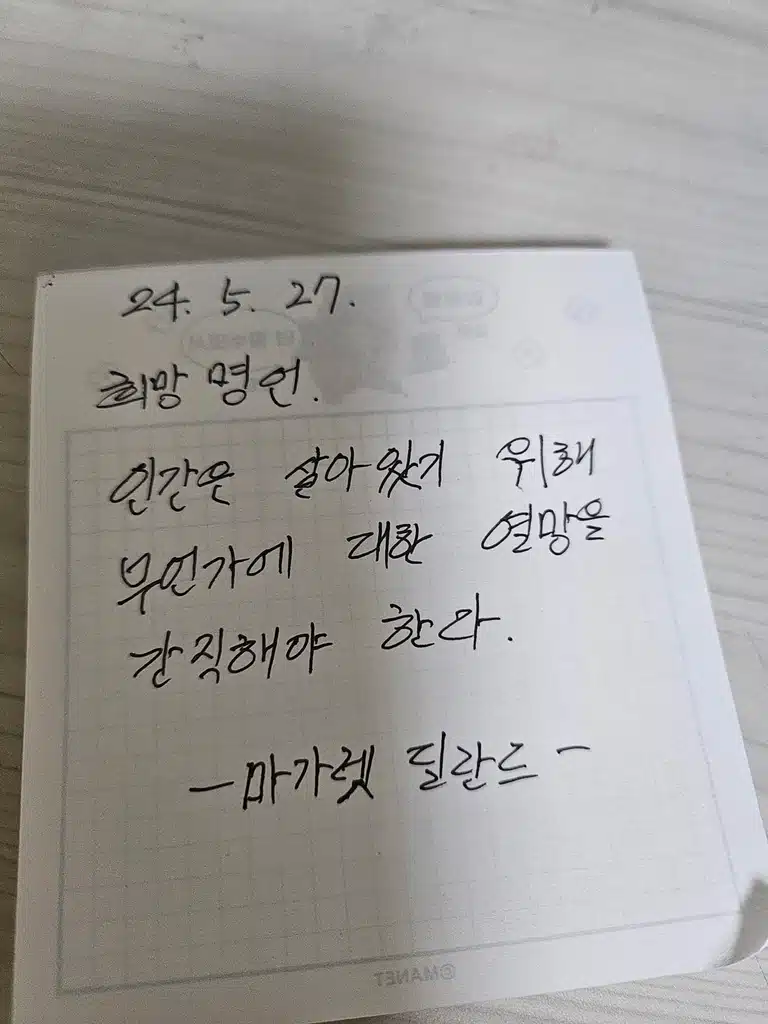 24. 5. 27.
희망 명언.
인간은 살아있기 위해
무언가에 대한 열망을
간직해야 한다.
-마가렛 딜란드-
@MANET